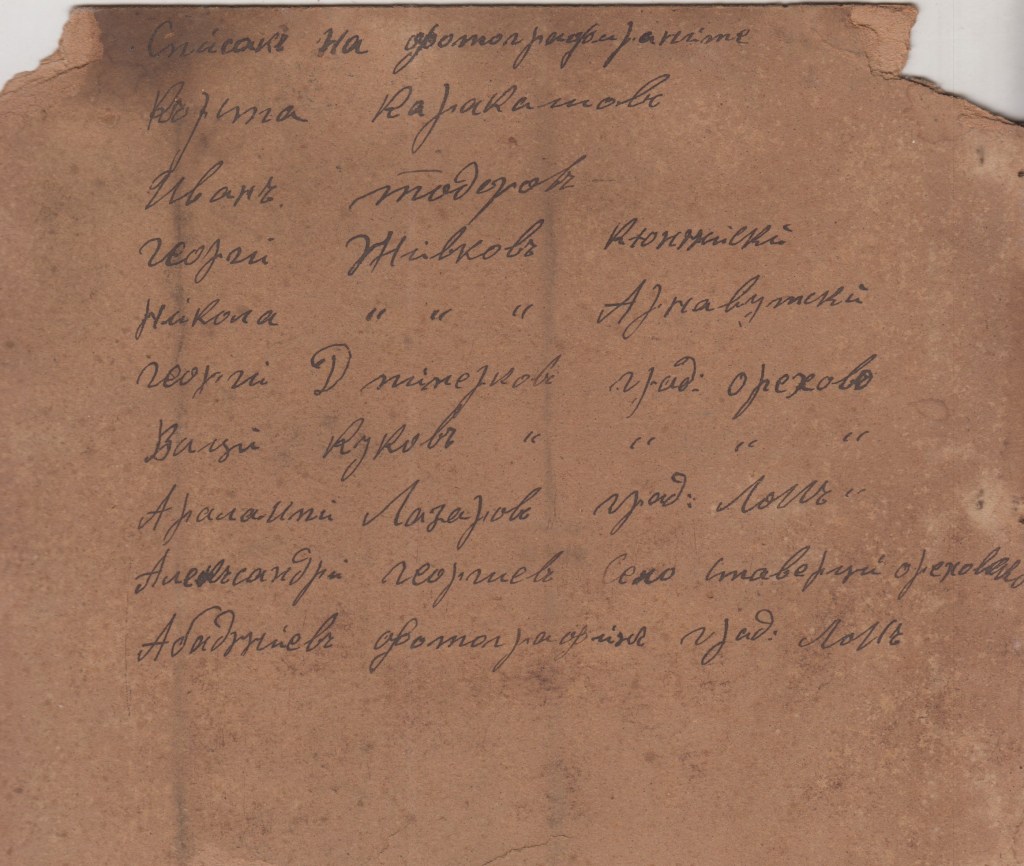 Списакъ на фотографираните
Кърста Каракашовъ
Иванъ. Тодоровъ
Георги Живковъ Кюнжиски
Никола " " " Арнавутски
Георги Д град: орехово
Ваци Куковъ " " " "
Аралампи Лазаровъ град: Ломъ "
Алексъандри Георгиевъ Село ставерци ореховско
Абаджиевъ фотографинъ град: Ломъ